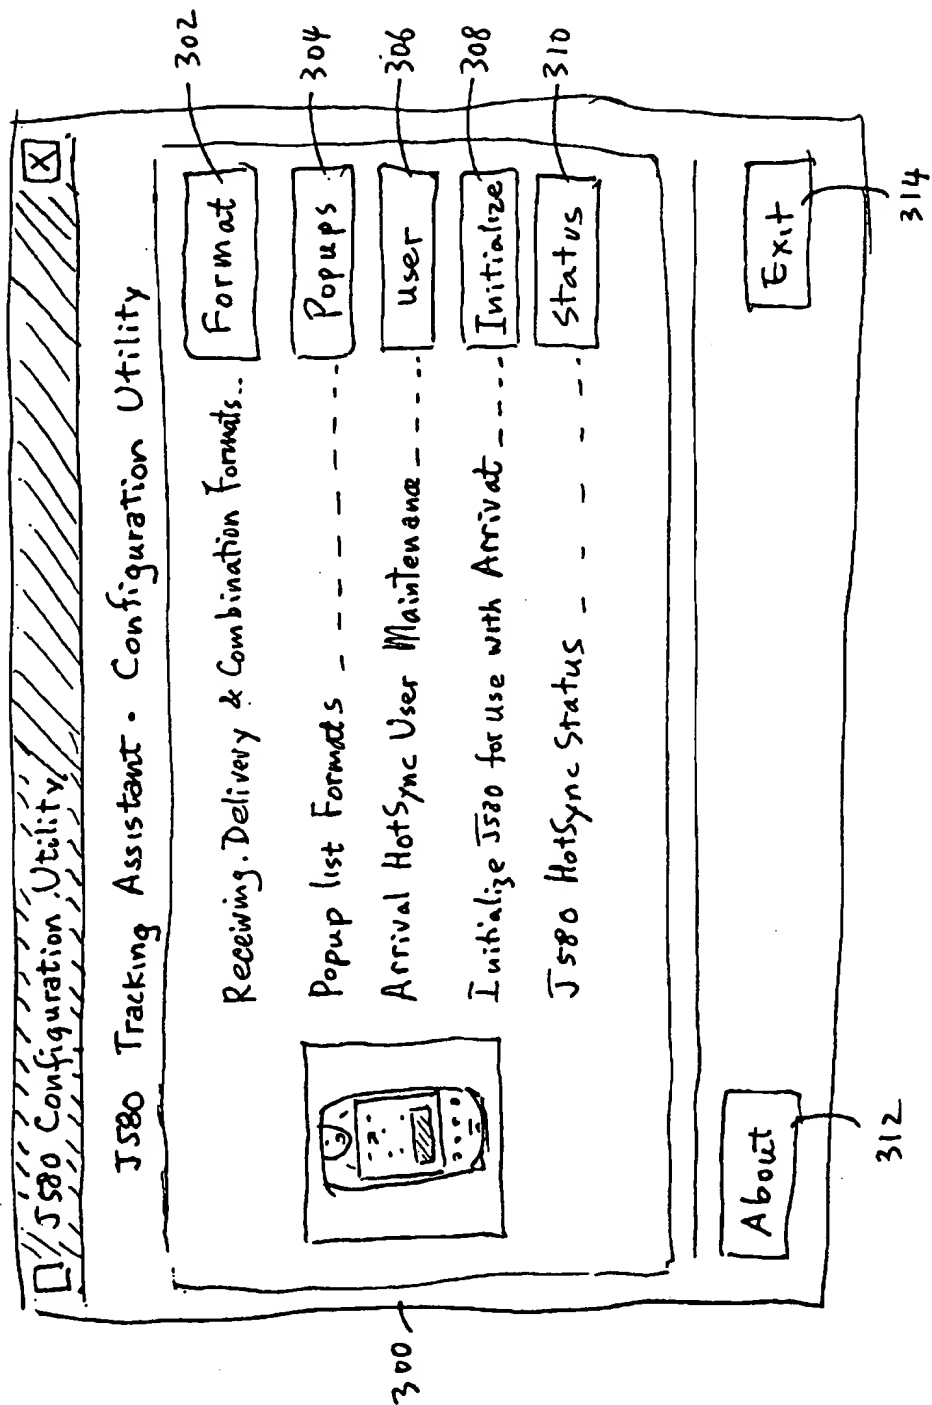 J580 Configuration Utility
X
J580 Tracking Assistant • Configuration Utility
Receiving, Delivery & Combination Formats..
Format
302
Popup list Formats
Popups
304
Arrival HotSync User Maintenance
User
306
Initialize J580 for use with Arrival
Initialize
308
J580 HotSync Status
Status
310
300
About
312
Exit
314